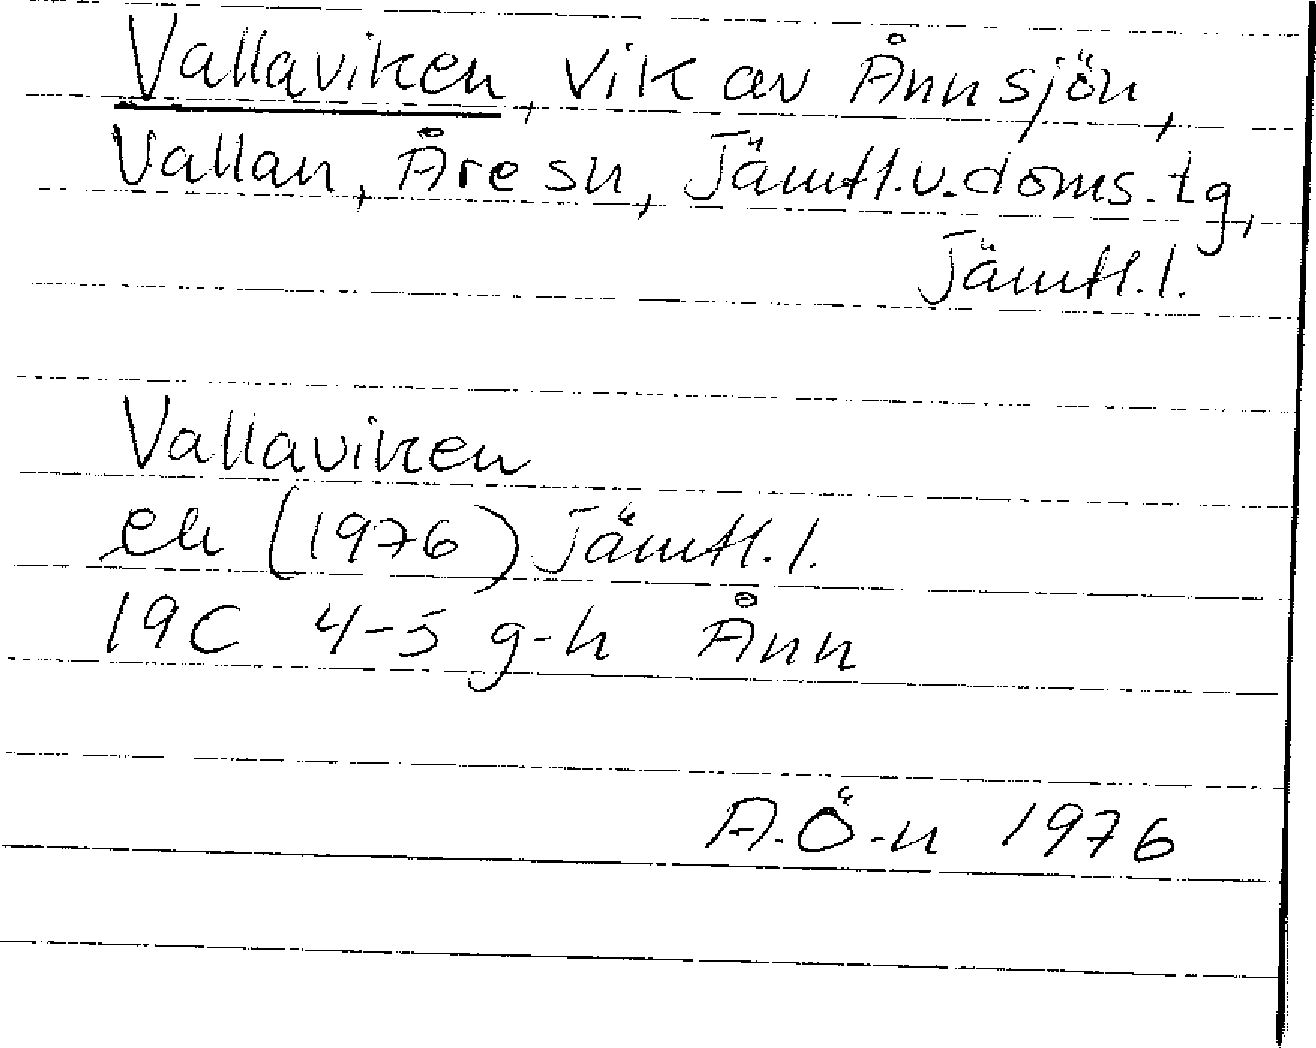 Vallaviken, vik av Ånnsjön,
Vallan, Åre sn, Jämtl.v.doms.tg,
Jämtl.l.
Vallaviken
ek (1976) Jämtl.l.
19C 4-5 g-h Ånn
A.Ö-n 1976